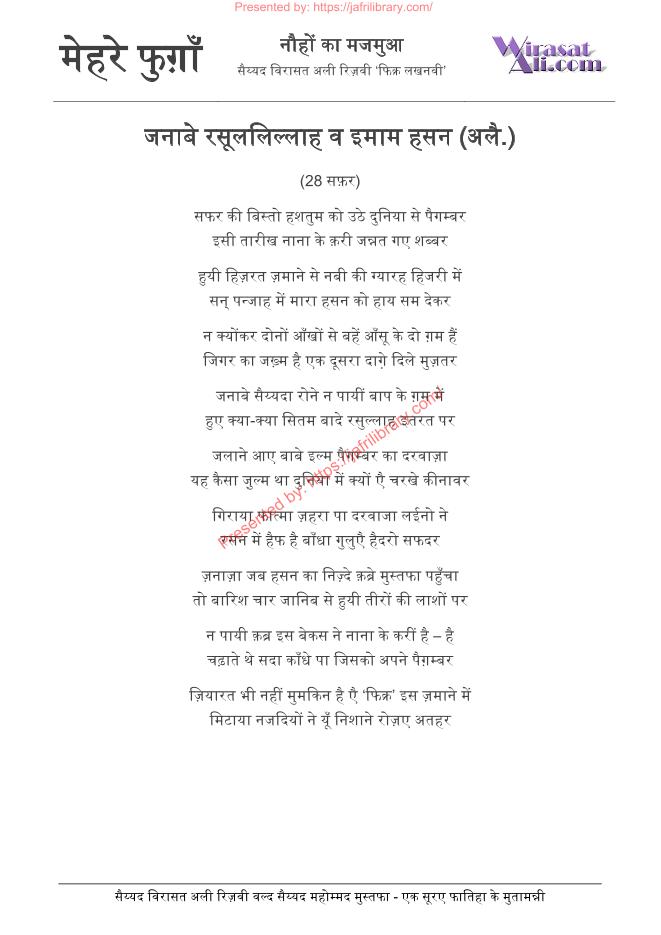 Presented by: https://jafrilibrary.com/
मेहरे फुग़ाँ
नौहों का मजमुआ
सैय्यद विरासत अली रिज़वी ‘फिक्र लखनवी’
Wirasat
Ali.com
जनाबे रसूललिल्लाह व इमाम हसन (अलै.)
(28 सफ़र)
सफर की बिस्तो हशतुम को उठे दुनिया से पैगम्बर
इसी तारीख नाना के क़री जन्नत गए शब्बर
हुयी हिज़रत ज़माने से नबी की ग्यारह हिजरी में
सन् पन्जाह में मारा हसन को हाय सम देकर
न क्योंकर दोनों आँखों से बहें आँसू के दो ग़म हैं
जिगर का जख़्म है एक दूसरा दाग़े दिले मुज़तर
जनाबे सैय्यदा रोने न पायीं बाप के ग़म में
हुए क्या-क्या सितम बादे रसुल्लाह इतरत पर
जलाने आए बाबे इल्म पैगम्बर का दरवाज़ा
यह कैसा जुल्म था दुनिया में क्यों एै चरखे कीनावर
गिराया फात्मा ज़हरा पा दरवाजा लईनो ने
रसन में हैफ है बाँधा गुलुएै हैदरो सफदर
ज़नाज़ा जब हसन का निज़्दे क़ब्रे मुस्तफा पहुँचा
तो बारिश चार जानिब से हुयी तीरों की लाशों पर
न पायी क़ब्र इस बेकस ने नाना के करीं है – है
चढ़ाते थे सदा काँधे पा जिसको अपने पैग़म्बर
ज़ियारत भी नहीं मुमकिन है एै ‘फिक्र’ इस ज़माने में
मिटाया नजदियों ने यूँ निशाने रोज़ए अतहर
Presented by: https://jafrilibrary.com/
सैय्यद विरासत अली रिज़वी वल्द सैय्यद महोम्मद मुस्तफा - एक सूरए फातिहा के मुतामन्नी